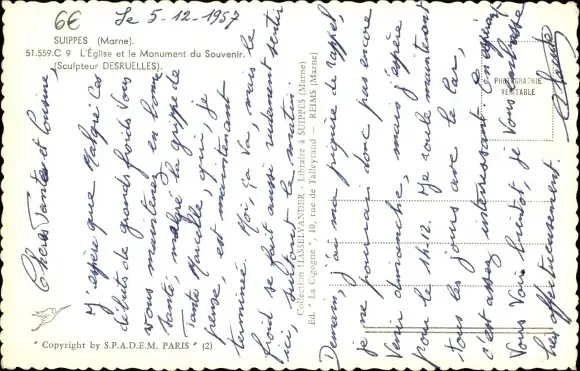 6€
Le 5-12-1957
SUIPPES (Marne).
51.559.C 9 L'Église et le Monument du Souvenir.
(Sculpteur DESRUELLES).
Chères Tantes et
J'espère que malgré ces
débuts de grands froids vous
vous maintenez en bonne
santé, malgré la grippe de
Tante Marcelle, qui, je
pense, est maintenant
terminée. Moi, ça va, mais le
froid se fait aussi rudement sentir
ici, surtout le matin.
Collection HASSELVANDER - Libraire à SUIPPES (Marne)
Ed. " La Cigogne ", 10, rue de Talleyrand — REIMS (Marne)
Demain, j'ai ma piqûre de rappel,
je ne pourrai donc pas encore
venir dimanche, mais j'espère
pour le 14-12. Je roule maintenant
tous les jours avec le car,
c'est assez intéressant.
vous voir bientôt, je vous
bien affectueusement.
PHOTOGRAPHIE
VÉRITABLE
" Copyright by S.P.A.D.E.M. PARIS " (2)